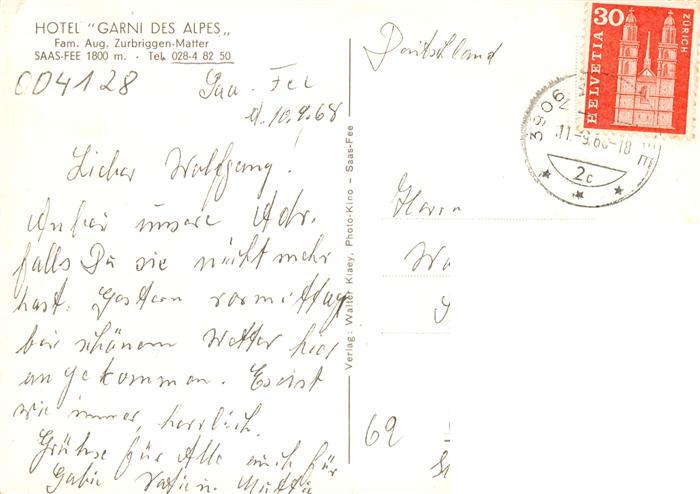 HOTEL "GARNI DES ALPES„
Fam. Aug. Zurbriggen-Matter
SAAS-FEE 1800 m. - Tel. 028-4 82 50
004128
Saa-Fee
d. 10.9.68
Lieber Wolfgang!
Anbei unsere Adr.
falls Du sie nicht mehr
hast. Gestern vormittag
bei schönem Wetter hier
angekommen. Es ist
wie immer, herrlich.
Grüße für Alle auch für
Gabi Vati u. Mutti
Verlag: Walter Klaey, Photo-Kino - Saas-Fee
Deutschland
30
HELVETIA
ZÜRICH
3906
11.-9.68-18
2c
Herrn
Wo
69